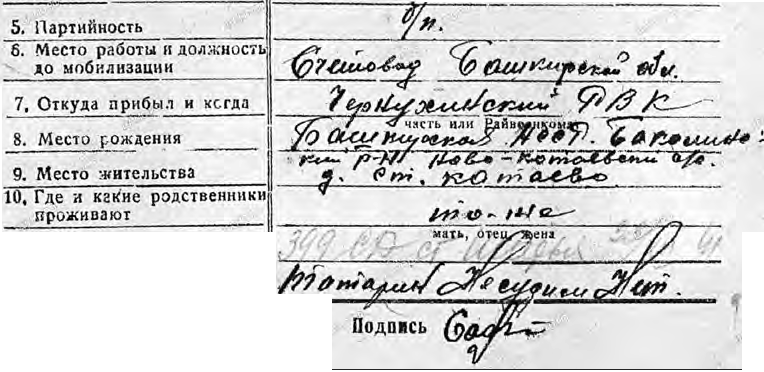 5. Партийность б/п.
6. Место работы и должность
до мобилизации Счетовод Башкирской обл.
7. Откуда прибыл и когда Чернухинский РВК
часть или Райвоенкомат
8. Место рождения Башкирская Асср. Бакалинс-
кий р-н Ново-Катаевский с/с.
9. Место жительства д. Ст. Катаево
10. Где и какие родственники
проживают то-же
мать, отец, жена
399 СД ст 41
Татарин Несудим Нет.
Подпись